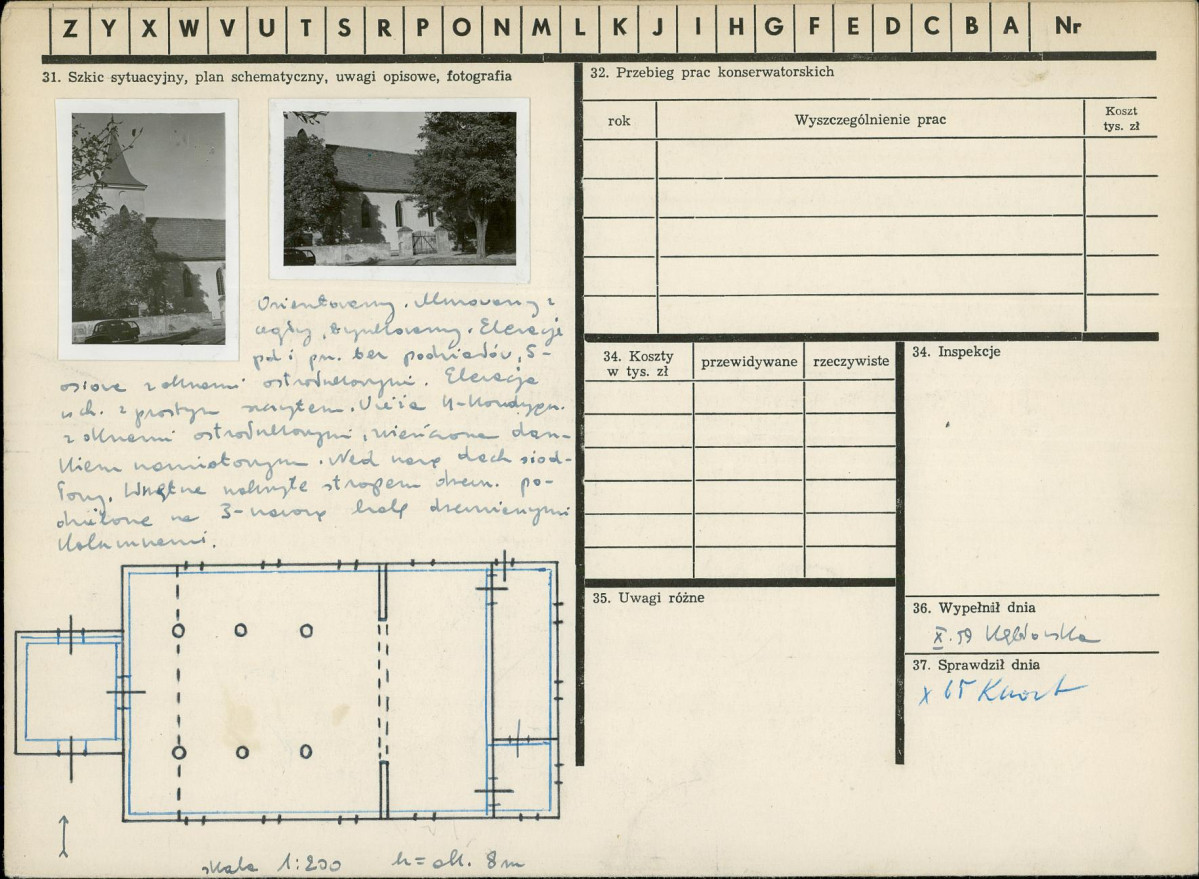 Z Y X W V U T S R P O N M L K J I H G F E D C B A Nr
31. Szkic sytuacyjny, plan schematyczny, uwagi opisowe, fotografia
Orientowany. Murowany z
cegły, tynkowany. Elewacje
pd i pn. bez podziałów, 5-
osiowe z oknami ostrołukowymi. Elewacja
wsch. z prostym szczytem. Wieża 4-kondygn.
z oknami ostrołukowymi, zwieńczona dasz-
kiem namiotowym. Nad nawą dach siod-
łowy. Wnętrze nakryte stropem drewn. po-
dzielone na 3-nawową halę drewnianymi
kolumnami.
skala 1:200 h = ok. 8 m
32. Przebieg prac konserwatorskich
rok Wyszczególnienie prac Koszt
tys. zł
34. Koszty
w tys. zł przewidywane rzeczywiste
34. Inspekcje
35. Uwagi różne
36. Wypełnił dnia
X. 59
37. Sprawdził dnia
X 65